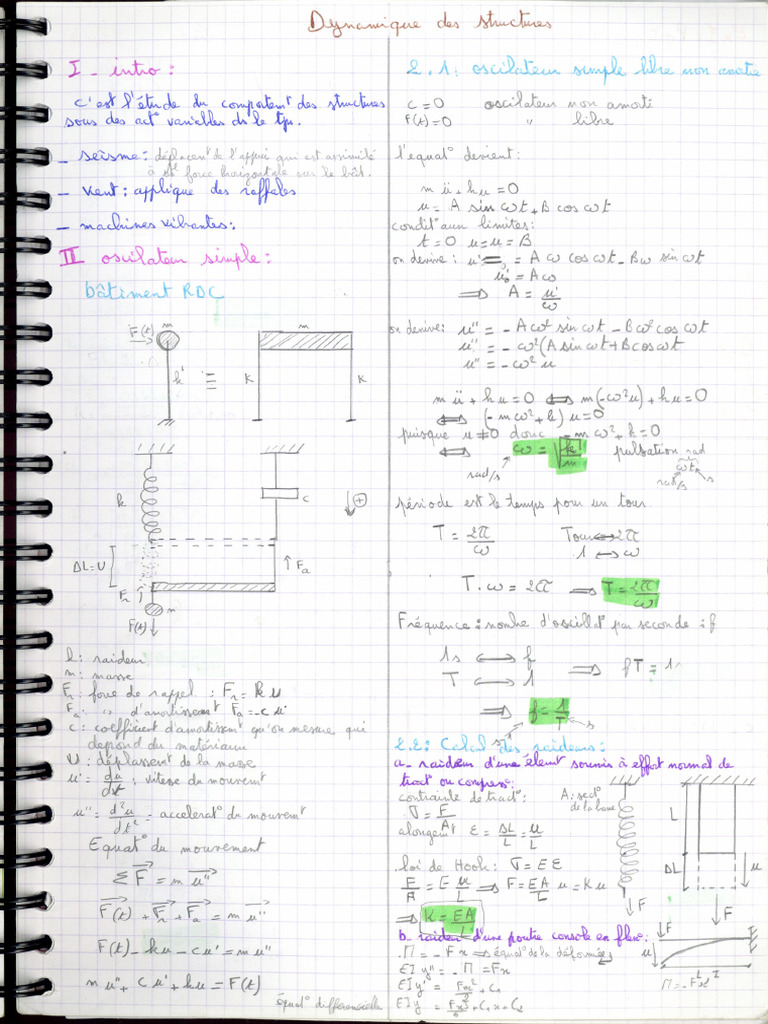 Dynamique des structures
I _ intro :
c'est l'étude du comportemt des structures
sous des act° variables ds le tps.
_ seïsme : déplacemt de l'appui qui est assimilé
à force horizontale sur le bât.
_ vent : applique des raffales
_ machines vibrantes :
II oscilateur simple :
bâtiment RDC
F(t) m
k'
≡
m
K K
k
c
+
ΔL=U
Fa
Fr
m
F(t)
k : raideur
m : masse
Fr : force de rappel : Fr = k u
Fa : " d'amortissemt Fa = -c u'
c : coefficient d'amortissemt qu'on mesure qui
depond du matériaux
U : déplassemt de la masse
u' = du/dt : vitesse du mouvemt
u'' = d²u/dt² = accelerat° du mouvemt
Equat° du mouvement
ΣF = m u''
F(t) + Fr + Fa = m u''
F(t) - ku - cu' = mu''
mu'' + cu' + ku = F(t)
équat° differencielle
2.1 : oscilateur simple libre non amortie
c = 0 oscilateur non amorti
F(t) = 0 " libre
l'equat° devient :
m ü + ku = 0
u = A sin ωt + B cos ωt
condit° aux limites :
t = 0 u = u = B
on derive : u' = A ω cos ωt - Bω sin ωt
u'₀ = Aω
⟹ A = u'/ω
on derive : u'' = - Aω² sin ωt - Bω² cos ωt
u'' = - ω² (A sin ωt + B cos ωt
u'' = - ω² u
m ü + ku = 0 ⟺ m(-ω²u) + ku = 0
⟺ (- mω² + k) u = 0
puisque u ≠ 0 donc - mω² + k = 0
⟺ ω = √k/m pulsation rad
rad/s
ωt
rad/s s
période est le temps pour un tour
T = 2π/ω Tour ⟷ 2π
1 ⟷ ω
T . ω = 2π ⟹ T = 2π/ω
Fréquence : nombre d'oscillat° par seconde : f
1s ⟷ f
T ⟷ 1
⟹ fT = 1
⟹ f = 1/T
s
2.2 : Calcul des raideurs :
a_ raideur d'une élemt soumis à effort normal de
tract° ou compress° :
contrainte de tract° :
A : sect°
de la barre
σ = F/A
alongemt ε = ΔL/L = u/L
loi de Hook : σ = E ε
F/A = E u/L ⟹ F = EA/L u = K u
⟹ K = EA/L
L
ΔL
u
F
F
b_ raideur d'une poutre console en flex° :
M = - Fx ⟹ équat° de la déformée
EI y'' = - M = Fx
EI y' = Fx²/2 + C₁
EI y = Fx³/6 + C₁x + C₂
F
u
L